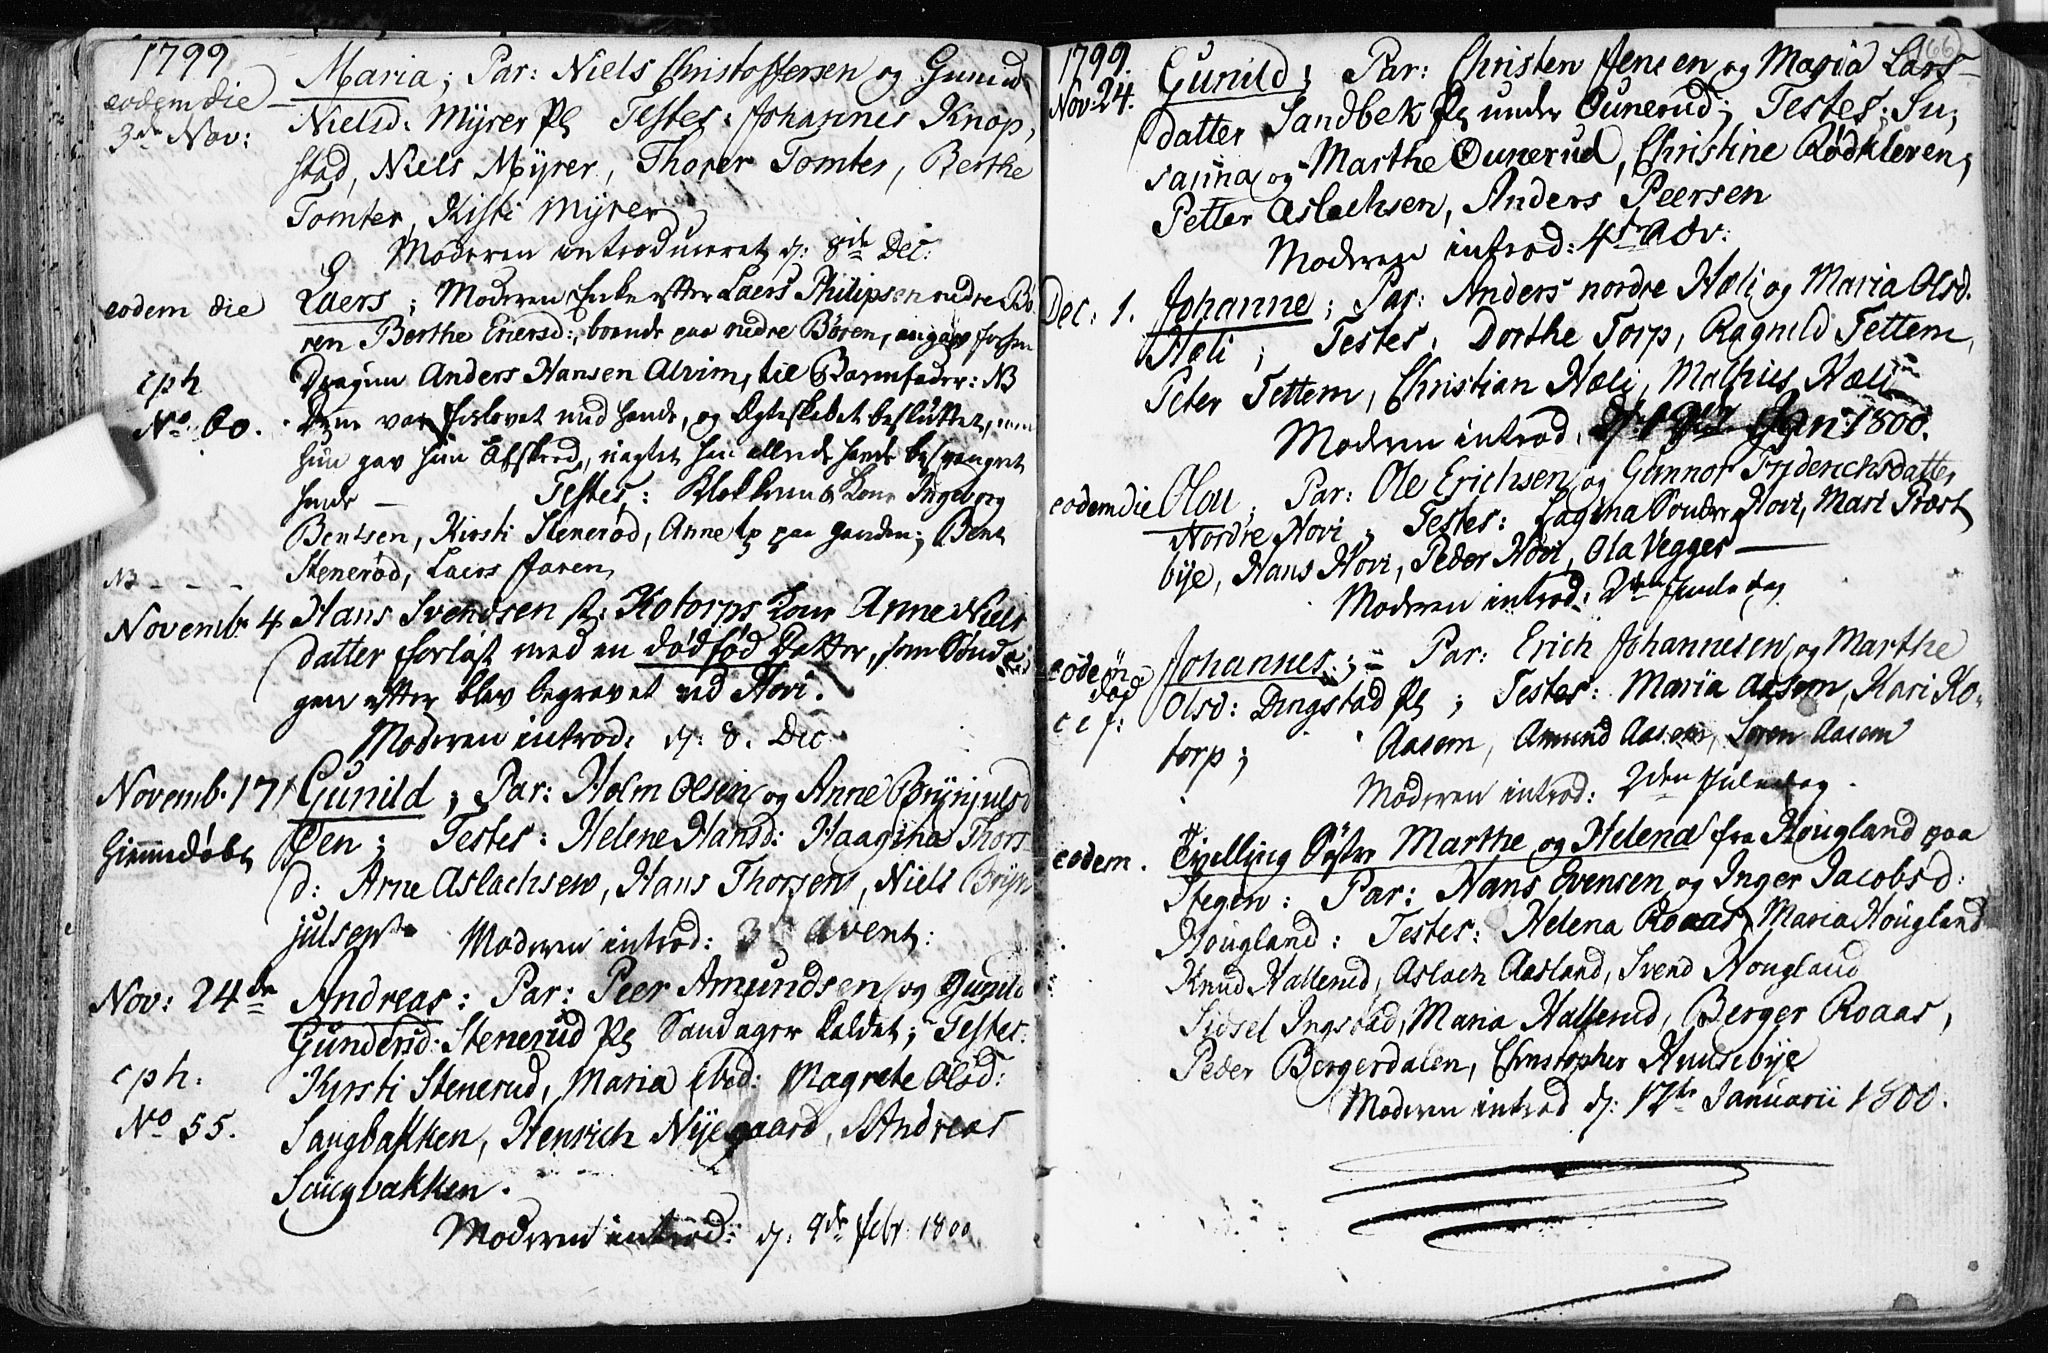 1799
eodem die Maria; Par: Niels Christoffersen og Gunild
3de Nov: Nielsd: Myrer Pl Testes: Johannes Knap,
stad, Niels Myrer, Thorer Tomter, Berthe
Tomter, Kisti Myrer
Moderen introduceret d: 8de Dec:
eodem die Laers; Moderen Enke efter Laers Philipsen nedre Bö
ren Berthe Eriersd:, boende paa nedre Bören, angav
Dragun Anders Hansen Alvim, til Barnefader: NB
cph
No 60. Denne var forlovet med hende, og Egteskabet besluttet, men
hun gav ham Afskeed, uagtet han allerede havde besvangret
hende — Testes: Klokkerens Kone Ingeborg
Bentsen, Kirsti Stenerød, Anne paa Bent
NB - - - Stenerød, Laers
Novembr 4 Hans Svendsen Kotorps Kone Anne Niels
datter forløst med en dødfød Datter, som Sønda
gen efter blev begravet ved Hovi.
Moderen introd: d: 8. Dec
Novemb. 17 Gunild; Par: Holm Olsen og Anne Brynjulsd
Hiemmedøbt Øen; Testes: Helene Hansd: Haagina Thors
d: Arne Aslachsen, Hans Thorsen, Niels Bryn
julsen Moderen introd: 3 Advent:
Nov: 24de Andreas: Par: Peer Amundsen og Gunild
Gundersd: Stenerud Pl Sandager kaldet; Testes:
cph. Kirsti Stenerud, Maria ibid: Magrete Olsd:
No 55. Saugbakken, Henrich Nyegaard, Andreas
Saugbakken.
Moderen introd: d: 9de febr 1800
66
1799.
Nov: 24. Gunild; Par: Christen Jensen og Maria Lars
datter Sandbek Pl under Ounerud; Testes: Su,
sanna og Marthe Ounerud, Christine Rödkleven,
Petter Aslachsen, Anders Peersen
Moderen introd: 4de Adv:
Dec: 1. Johanne; Par: Anders nordre Hæli og Maria Olsd.
Hæli; Testes: Dorthe Torp, Ragnild Tettem,
Peter Tettem, Christian Hæli, Mathias Hæli
Moderen introd. 1800.
eodem die Olou; Par: Ole Erichsen og Gunnor Friderichsdatter
Nordre Hovi; Testes: Ragina Söndre Hovi, Mari Præst
bye, Hans Hovi, Peder Hovi, Ola Vegger —
Moderen introd: 2den Juledag
eodem Johannes; Par: Erich Johannesen og Marthe
Olsd: Dingstad Pl; Testes: Maria Aasem, Kari Ko-
torp; Aasem, Amund Aasem, Søren Aasem
Moderen introd: 2den Juledag.
eodem. Tvilling Søstre Marthe og Helena fra Hougland paa
Stegen: Par: Hans Evensen og Inger Jacobsd:
Hougland: Testes: Helena Roaas, Maria Hougland
Knud Hallerud, Aslach Aasland, Svend Hougland
Sidsel Ingstad, Maria Hallerud, Berger Roaas,
Peder Bergerdalen, Christopher Huusebye
Moderen introd d: 12te Januarii 1800.